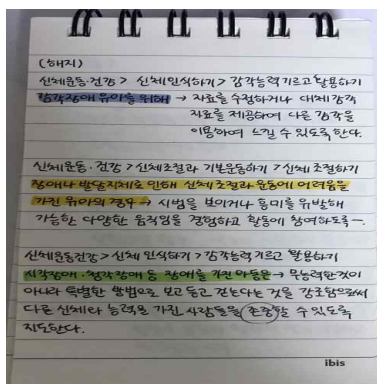 (해지)
신체운동·건강 > 신체인식하기 > 감각능력기르고 활용하기
감각장애 유아를 위해 → 자료를 수정하거나 대체감각
자료를 제공하여 다른 감각을
이용하여 느낄 수 있도록 한다.
신체운동·건강 > 신체조절과 기본운동하기 > 신체조절하기
장애나 발달지체로 인해 신체조절과 운동에 어려움을
가진 유아의 경우 → 시범을 보이거나 흥미를 유발해
가능한 다양한 움직임을 경험하고 활동에 참여하도록~.
신체운동건강 > 신체 인식하기 > 감각능력 기르고 활용하기
시각장애·청각장애 등 장애를 가진 아동은 → 무능력한것이
아니라 특별한 방법으로 보고 듣고 걷는다는 것을 강조함으로써
다른 신체나 능력을 가진 사람들을 존중할 수 있도록
지도한다.
ibis